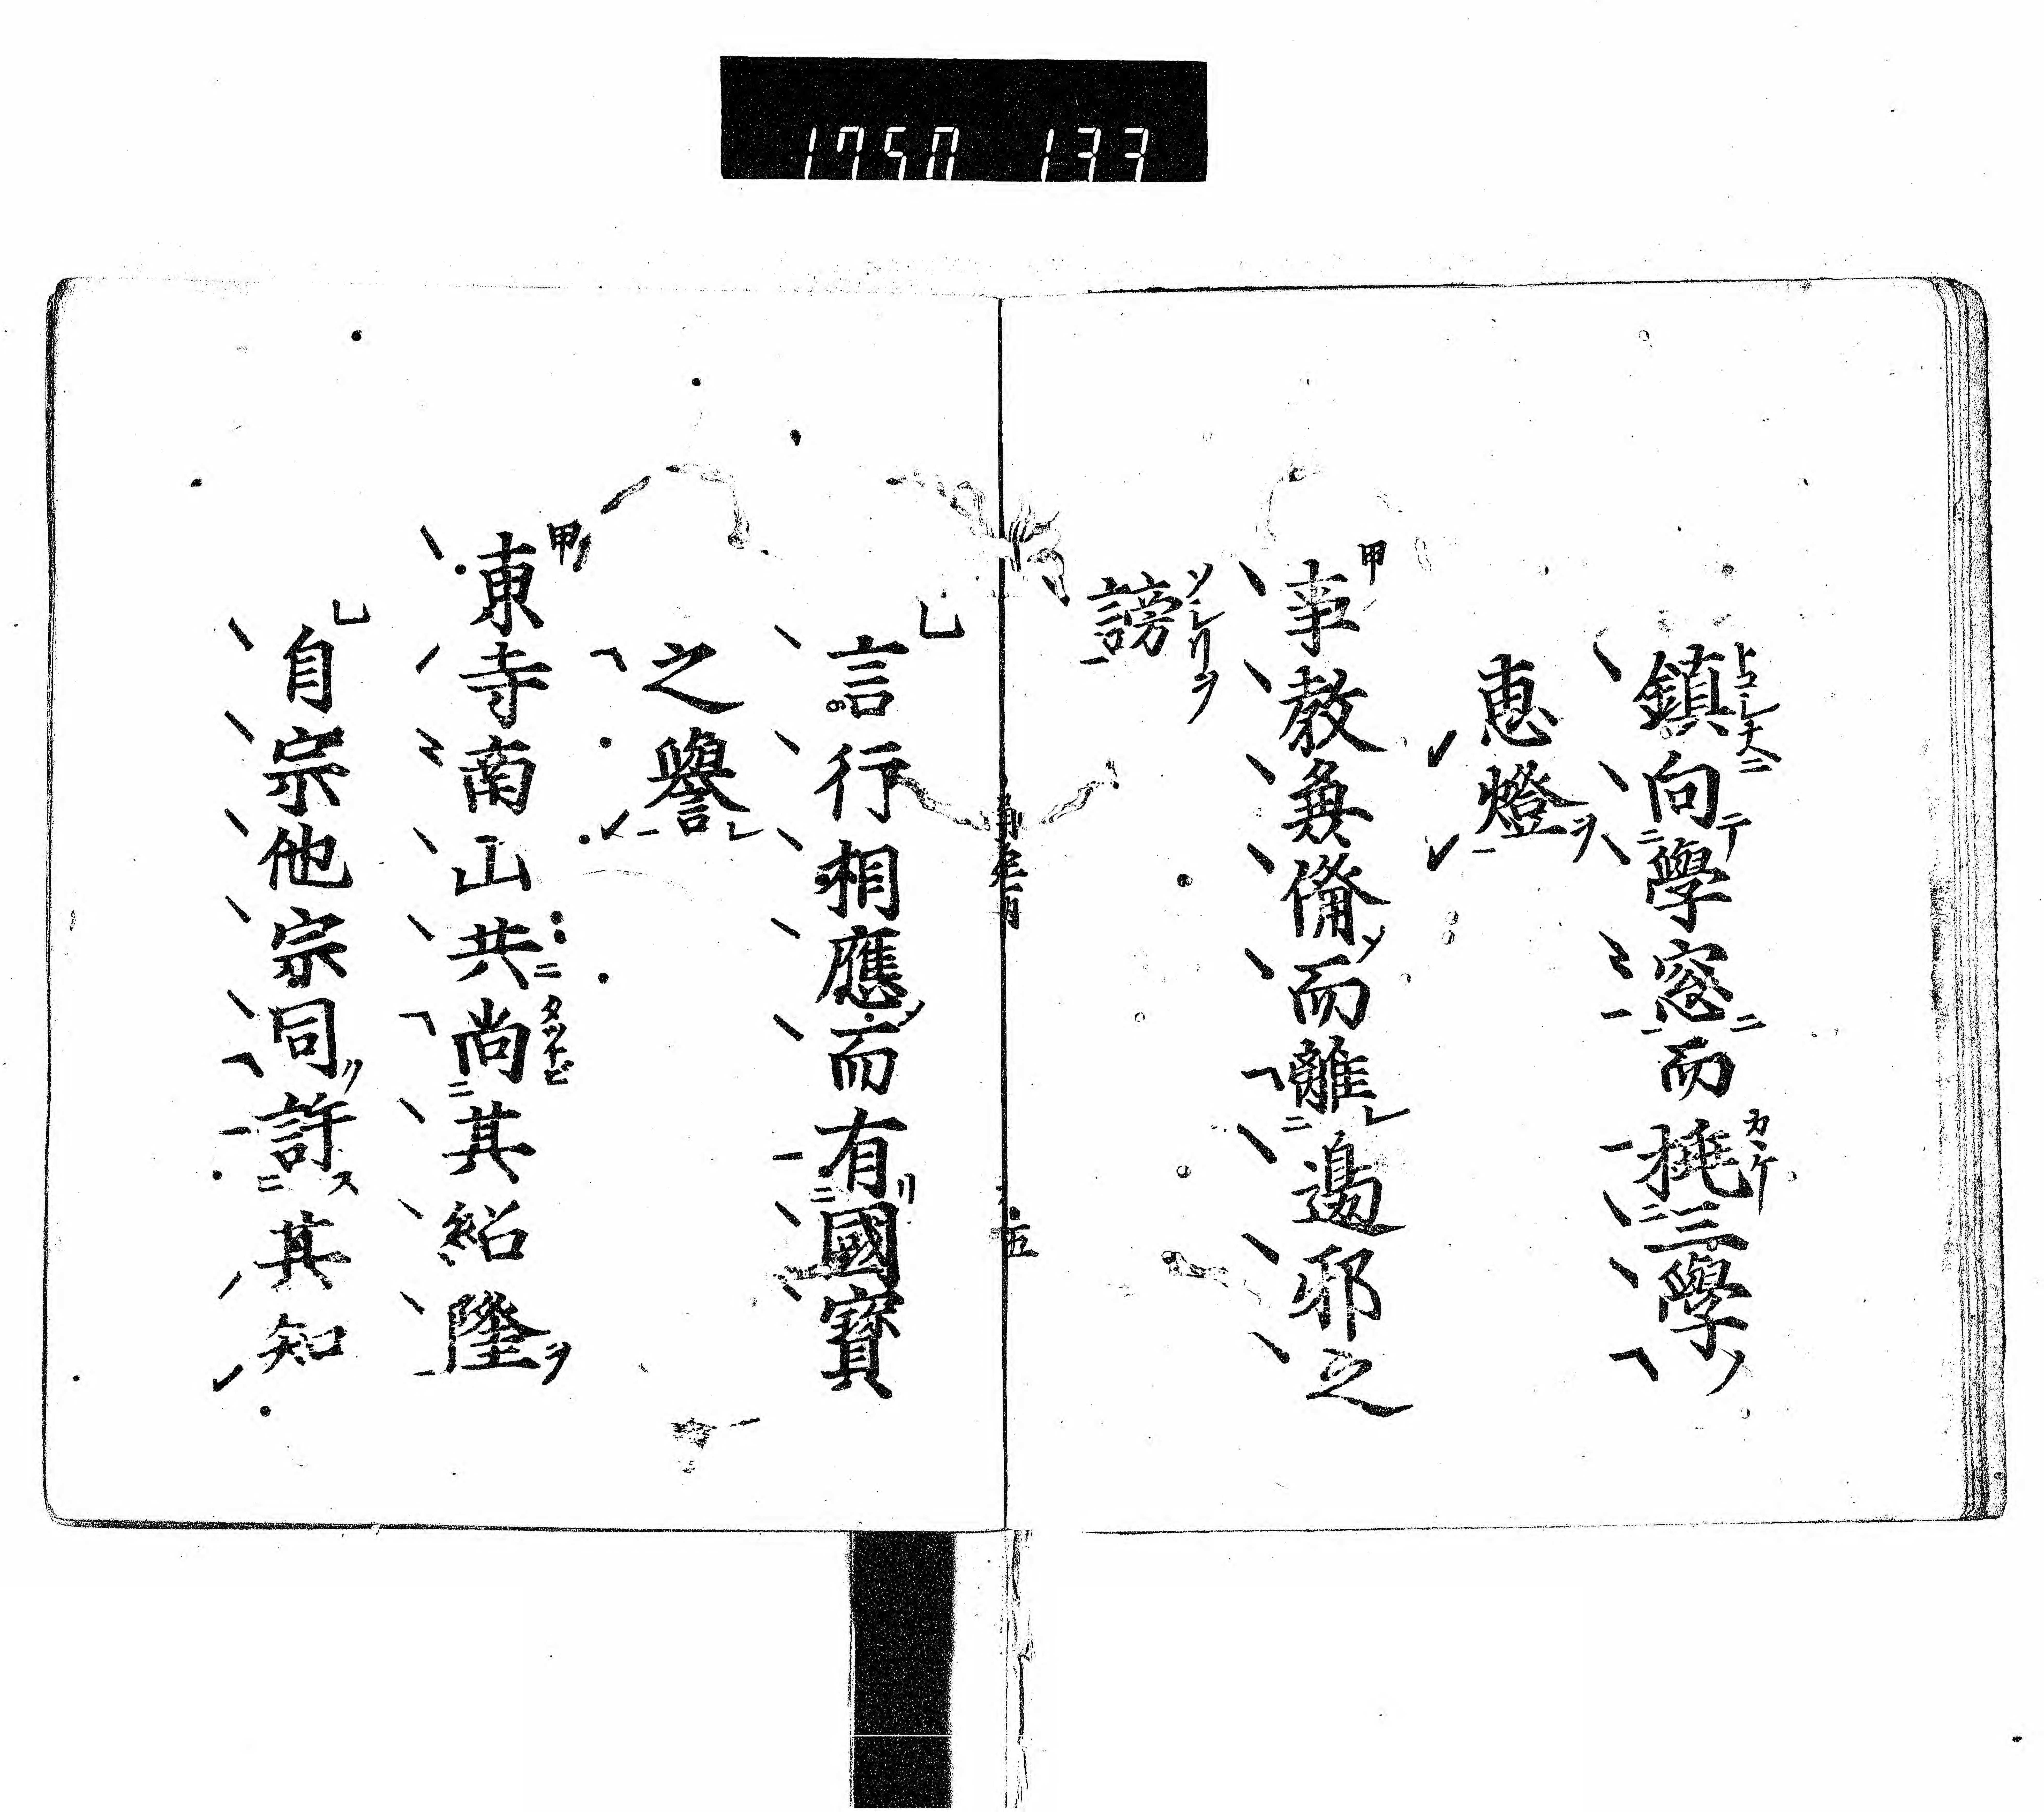 1750 133
鎮向學窓而挑三學
惠燈
事教兼備而離邊邪之
謗
言行相應而有國寶
之譽
東寺南山共尚其紹隆
自宗他宗同許其知
五